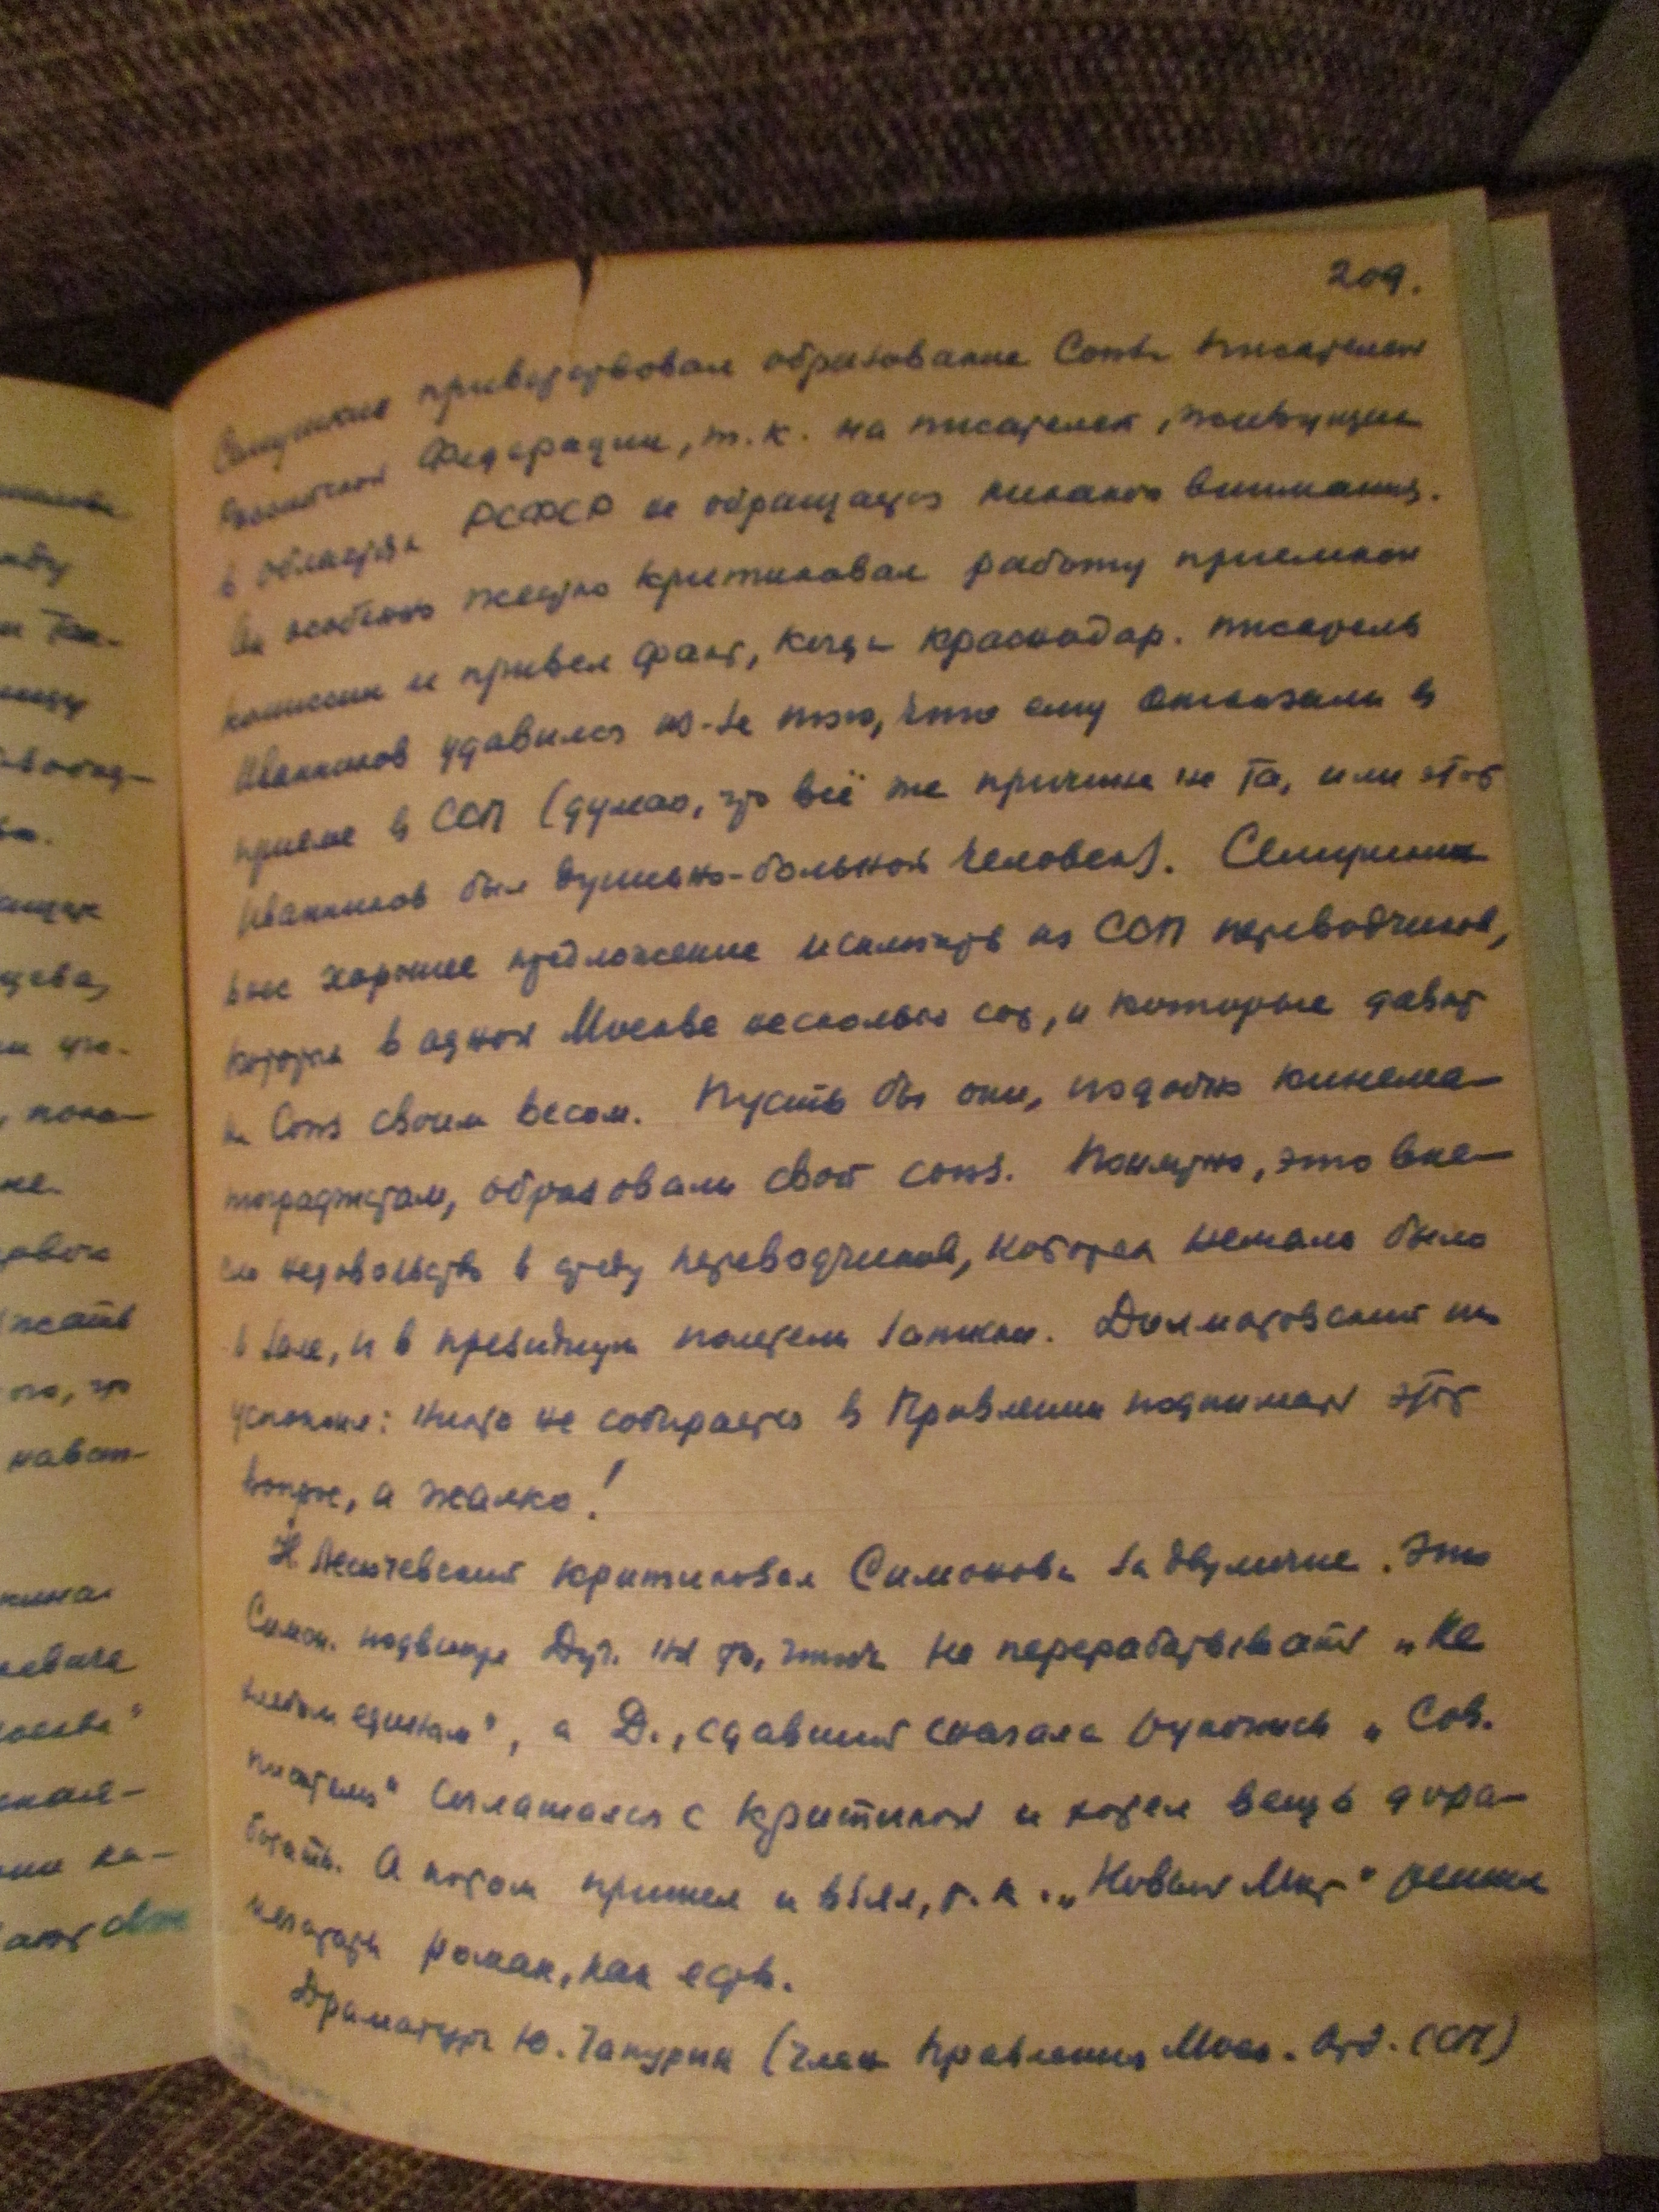 209.
Семушкин приветствовал образование Союза писателей
Российской Федерации, т.к. на писателей, живущих
в областях РСФСР не обращается никакого внимания.
Он особенно жестко критиковал работу приемной
комиссии и привел факт, когда краснодар. писатель
Иванников удавился из-за того, что ему отказали в
приеме в ССП (думаю, что всё же причина не та, или этот
Иванников был душевно-больной человек). Семушкин
внес хорошее предложение исключить из ССП переводчиков,
которых в одной Москве несколько сот, и которые давят
на Союз своим весом. Пусть бы они, подобно кинема-
тографистам, образовали свой союз. Понятно, это внес-
ло недовольство в среду переводчиков, которых немало было
в зале, и в президиум полетели записки. Долматовский их
успокоил: никто не собирается в Правлении поднимать этот
вопрос, а жалко!
Н Лесючевский критиковал Симонова за двуличие. Это
Симон. подвинул Дуд. на то, чтобы не перерабатывать „Не
хлебом единым", а Д., сдавший сначала рукопись „Сов.
писателю" соглашался с критикой и хотел вещь дора-
ботать. А потом пришел и взял, т.к. „Новый Мир" решил
печатать роман, как есть.
Драматург Ю. Чепурин (член Правления Моск. Отд. ССП)
мнов
жду
авовид-
щева,
пока-
не.
жать
ого, что
нават-
евича
ная-
ка-